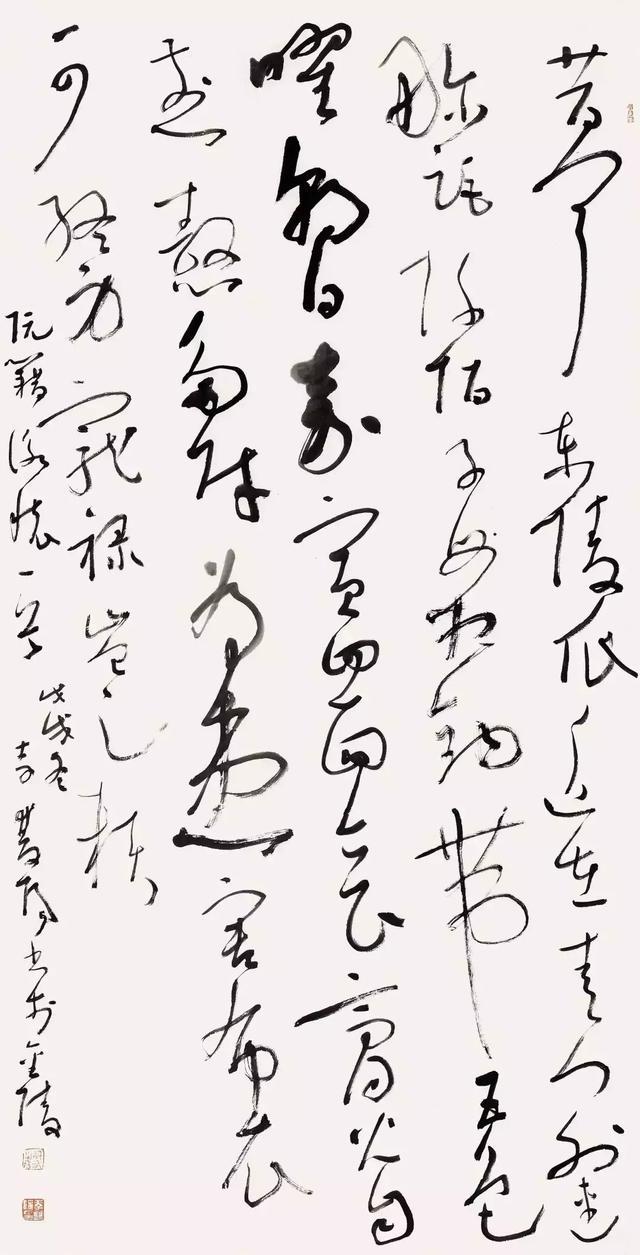 昔聞東陵瓜近在青門外連
畛距阡陌子母相鉤帶五色
曜朝日嘉賓四面會膏火自
煎熬多財為患害布衣
可終身寵祿豈足賴
阮籍詠懷一首 戊戌冬 李雙陽書於金陵